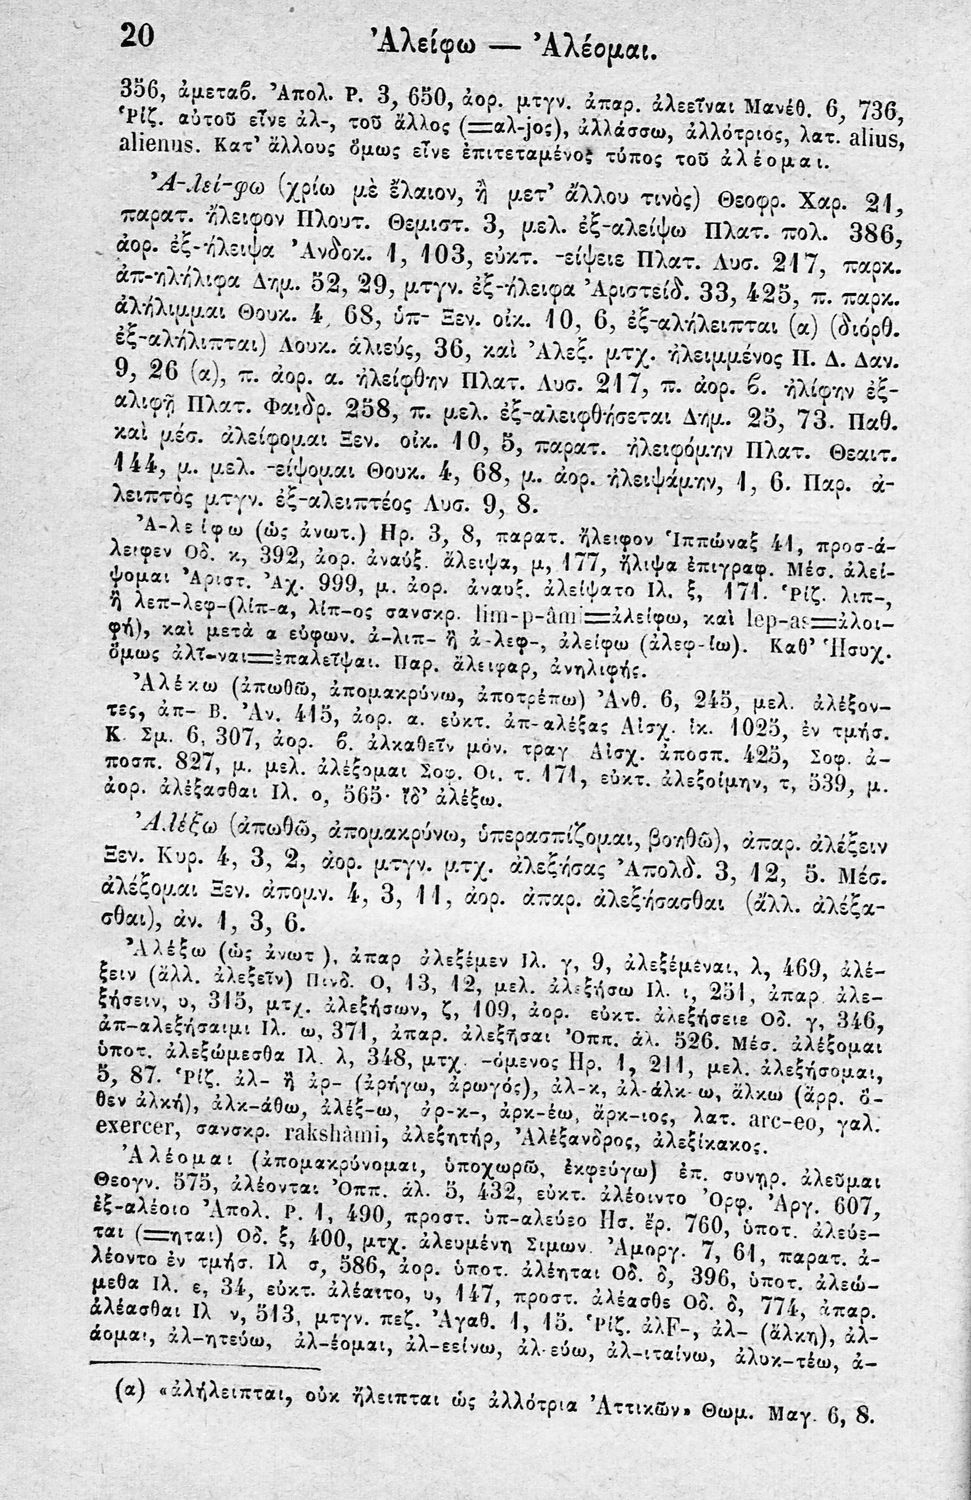 20
Ἀλείφω — Ἀλέομαι.
356, ἀμεταβ. Ἀπολ. Ρ. 3, 650, ἀορ. μτγν. ἀπαρ. ἀλεεῖναι Μανέθ. 6, 736,
Ῥίζ. αὐτοῦ εἶνε ἀλ-, τοῦ ἄλλος (=al-jος), ἀλλάσσω, ἀλλότριος, λατ. alius,
alienus. Κατ' ἄλλους ὅμως εἶνε ἐπιτεταμένος τύπος τοῦ ἀλέομαι.
Ἀ-λεί-φω (χρίω μὲ ἔλαιον, ἢ μετ' ἄλλου τινὸς) Θεοφρ. Χαρ. 21,
παρατ. ἤλειφον Πλουτ. Θεμιστ. 3, μελ. ἐξ-αλείψω Πλατ. πολ. 386,
ἀορ. ἐξ-ήλειψα Ἀνδοκ. 1, 103, εὐκτ. -είψειε Πλατ. Λυσ. 217, παρκ.
ἀπ-ηλήλιφα Δημ. 52, 29, μτγν. ἐξ-ήλειφα Ἀριστείδ. 33, 425, π. παρκ.
ἀλήλιμμαι Θουκ. 4, 68, ὑπ- Ξεν. οἰκ. 10, 6, ἐξ-αλήλειπται (α) (διόρθ.
ἐξ-αλήλιπται) Λουκ. ἁλιεύς, 36, καὶ Ἀλεξ. μτχ. ἠλειμμένος Π. Δ. Δαν.
9, 26 (α), π. ἀορ. α. ἠλείφθην Πλατ. Λυσ. 217, π. ἀορ. β. ἠλίφην ἐξ-
αλιφῇ Πλατ. Φαιδρ. 258, π. μελ. ἐξ-αλειφθήσεται Δημ. 25, 73. Παθ.
καὶ μέσ. ἀλείφομαι Ξεν. οἰκ. 10, 5, παρατ. ἠλειφόμην Πλατ. Θεαιτ.
144, μ. μελ. -είψομαι Θουκ. 4, 68, μ. ἀορ. ἠλειψάμην, 1, 6. Παρ. ἀ-
λειπτὸς μτγν. ἐξ-αλειπτέος Λυσ. 9, 8.
Ἀ-λείφω (ὡς ἀνωτ.) Ηρ. 3, 8, παρατ. ἤλειφον Ἱππώναξ 41, προσ-ά-
λειφεν Οδ. κ, 392, ἀορ. ἀναύξ. ἄλειψα, μ, 177, ἤλιψα ἐπιγραφ. Μέσ. ἀλεί-
ψομαι Ἀριστ. Ἀχ. 999, μ. ἀορ. ἀναυξ. ἀλείψατο Ιλ. ξ, 171. Ῥίζ. λιπ-,
ἢ λεπ-λεφ-(λίπ-α, λίπ-ος σανσκρ. lim-p-âmi=ἀλείφω, καὶ lep-as=ἀλοι-
φή), καὶ μετὰ α εὐφων. ἀ-λιπ- ἢ ἀ-λεφ-, ἀλείφω (ἀλεφ-ίω). Καθ' Ἡσυχ.
ὅμως ἀλῖ-ναι=ἐπαλεῖψαι. Παρ. ἄλειφαρ, ἀνηλιφής.
Ἀλέκω (ἀπωθῶ, ἀπομακρύνω, ἀποτρέπω) Ἀνθ. 6, 245, μελ. ἀλέξον-
τες, ἀπ- Β. Ἀν. 415, ἀορ. α. εὐκτ. ἀπ-αλέξας Αἰσχ. ἱκ. 1025, ἐν τμήσ.
Κ. Σμ. 6, 307, ἀορ. β. ἀλκαθεῖν μόν. τραγ Αἰσχ. ἀποσπ. 425, Σοφ. ἀ-
ποσπ. 827, μ. μελ. ἀλέξομαι Σοφ. Οι. τ. 171, εὐκτ. ἀλεξοίμην, τ, 539, μ.
ἀορ. ἀλέξασθαι Ιλ. ο, 565· ἴδ' ἀλέξω.
Ἀλέξω (ἀπωθῶ, ἀπομακρύνω, ὑπερασπίζομαι, βοηθῶ), ἀπαρ. ἀλέξειν
Ξεν. Κυρ. 4, 3, 2, ἀορ. μτγν. μτχ. ἀλεξήσας Ἀπολδ. 3, 12, 5. Μέσ.
ἀλέξομαι Ξεν. ἀπομν. 4, 3, 11, ἀορ. ἀπαρ. ἀλεξήσασθαι (ἄλλ. ἀλέξα-
σθαι), ἀν. 1, 3, 6.
Ἀλέξω (ὡς ἀνωτ ), ἀπαρ ἀλεξέμεν Ιλ. γ, 9, ἀλεξέμεναι, λ, 469, ἀλέ-
ξειν (ἄλλ. ἀλεξεῖν) Πινδ. Ο, 13, 12, μελ. ἀλεξήσω Ιλ. ι, 251, ἀπαρ. ἀλε-
ξήσειν, υ, 315, μτχ. ἀλεξήσων, ζ, 109, ἀορ. εὐκτ. ἀλεξήσειε Οδ. γ, 346,
ἀπ-αλεξήσαιμι Ιλ. ω, 371, ἀπαρ. ἀλεξῆσαι Ὀππ. ἁλ. 526. Μέσ. ἀλέξομαι
ὑποτ. ἀλεξώμεσθα Ιλ. λ, 348, μτχ. -όμενος Ηρ. 1, 211, μελ. ἀλεξήσομαι,
5, 87. Ῥίζ. ἀλ- ἢ ἀρ- (ἀρήγω, ἀρωγός), ἀλ-κ, ἀλ-άλκ-ω, ἄλκω (ἄρρ. ὅ-
θεν ἀλκή), ἀλκ-άθω, ἀλέξ-ω, ἀρ-κ-, ἀρκ-έω, ἄρκ-ιος, λατ. arc-eo, γαλ.
exercer, σανσκρ. rakshâmi, ἀλεξητήρ, Ἀλέξανδρος, ἀλεξίκακος.
Ἀλέομαι (ἀπομακρύνομαι, ὑποχωρῶ, ἐκφεύγω) ἐπ. συνηρ. ἀλεῦμαι
Θεογν. 575, ἀλέονται Ὀππ. ἁλ. 5, 432, εὐκτ. ἀλέοιντο Ὀρφ. Ἀργ. 607,
ἐξ-αλέοιο Ἀπολ. Ρ. 1, 490, προστ. ὑπ-αλεύεο Ησ. ἔρ. 760, ὑποτ. ἀλεύε-
ται (=ηται) Οδ. ξ, 400, μτχ. ἀλευμένη Σιμων. Ἀμοργ. 7, 61, παρατ. ἀ-
λέοντο ἐν τμήσ. Ιλ σ, 586, ἀορ. ὑποτ. ἀλέηται Οδ. δ, 396, ὑποτ. ἀλεώ-
μεθα Ιλ. ε, 34, εὐκτ. ἀλέαιτο, υ, 147, προστ. ἀλέασθε Οδ. δ, 774, ἀπαρ.
ἀλέασθαι Ιλ ν, 513, μτγν. πεζ. Ἀγαθ. 1, 15. Ῥίζ. ἀλF-, ἀλ- (ἄλκη), ἀλ-
άομαι, ἀλ-ητεύω, ἀλ-έομαι, ἀλ-εείνω, ἀλ-εύω, ἀλ-ιταίνω, ἀλυκ-τέω, ἀ-
(α) «ἀλήλειπται, οὐκ ἤλειπται ὡς ἀλλότρια Ἀττικῶν» Θωμ. Μαγ. 6, 8.